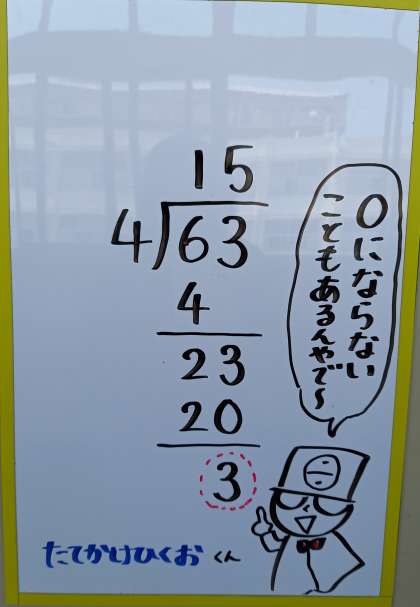 15
4)63
4
23
20
3
0にならない
こともあるんやで〜
たてかけひくお くん